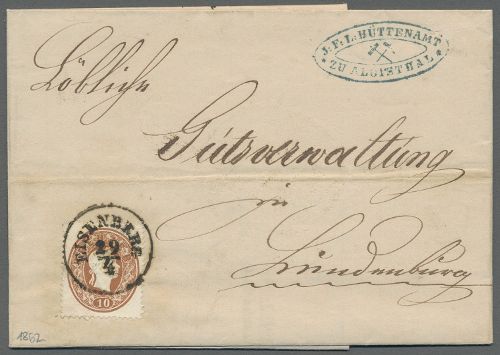 J. F. L. HÜTTENAMT
ZU ALOISTHAL
Löbliche
Gutsverwaltung
in
Lundenburg
EISENBERG
29/4
10
1862